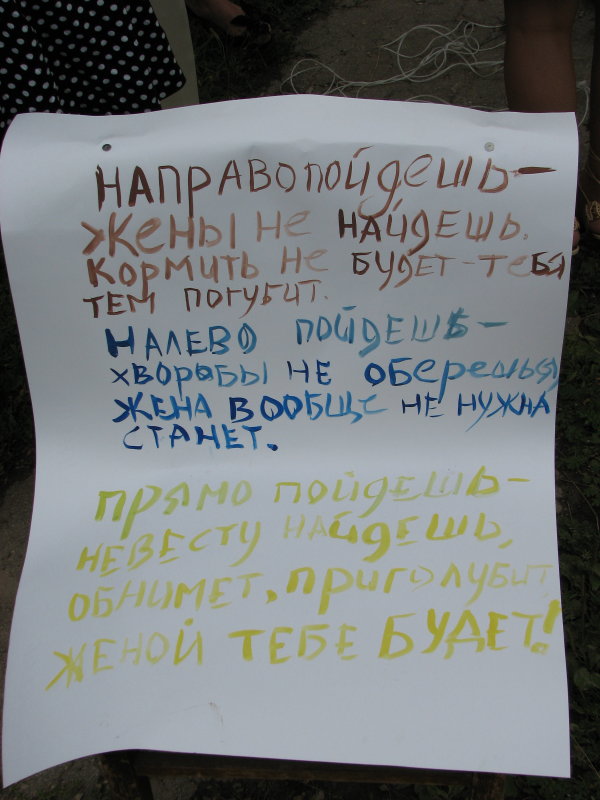 НАПРАВО ПОЙДЕШЬ-
ЖЕНЫ НЕ НАЙДЕШЬ.
КОРМИТЬ НЕ БУДЕТ-ТЕБЯ
ТЕМ ПОГУБИТ.
НАЛЕВО ПОЙДЕШЬ-
ХВОРОБЫ НЕ ОБЕРЕШЬСЯ,
ЖЕНА ВООБЩЕ НЕ НУЖНА
СТАНЕТ.
ПРЯМО ПОЙДЕШЬ-
НЕВЕСТУ НАЙДЕШЬ,
ОБНИМЕТ, ПРИГОЛУБИТ,
ЖЕНОЙ ТЕБЕ БУДЕТ!